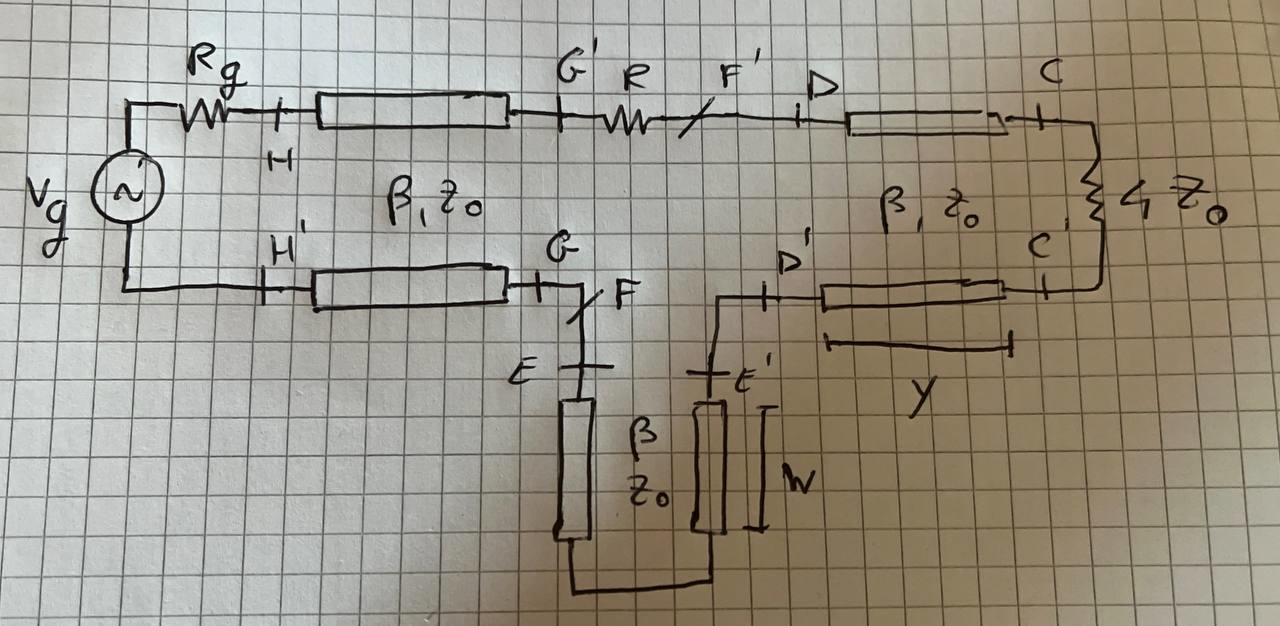 Rg
H
G'
R
F'
D
C
Vg
β, Z₀
β, Z₀
4 Z₀
H'
G
F
D'
C'
E
E'
β
Z₀
W
y